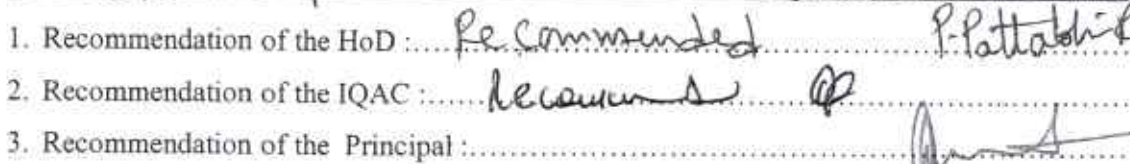 1. Recommendation of the HoD :.... Recommended ............ P. Pattabhi R
2. Recommendation of the IQAC :.....
3. Recommendation of the Principal :....